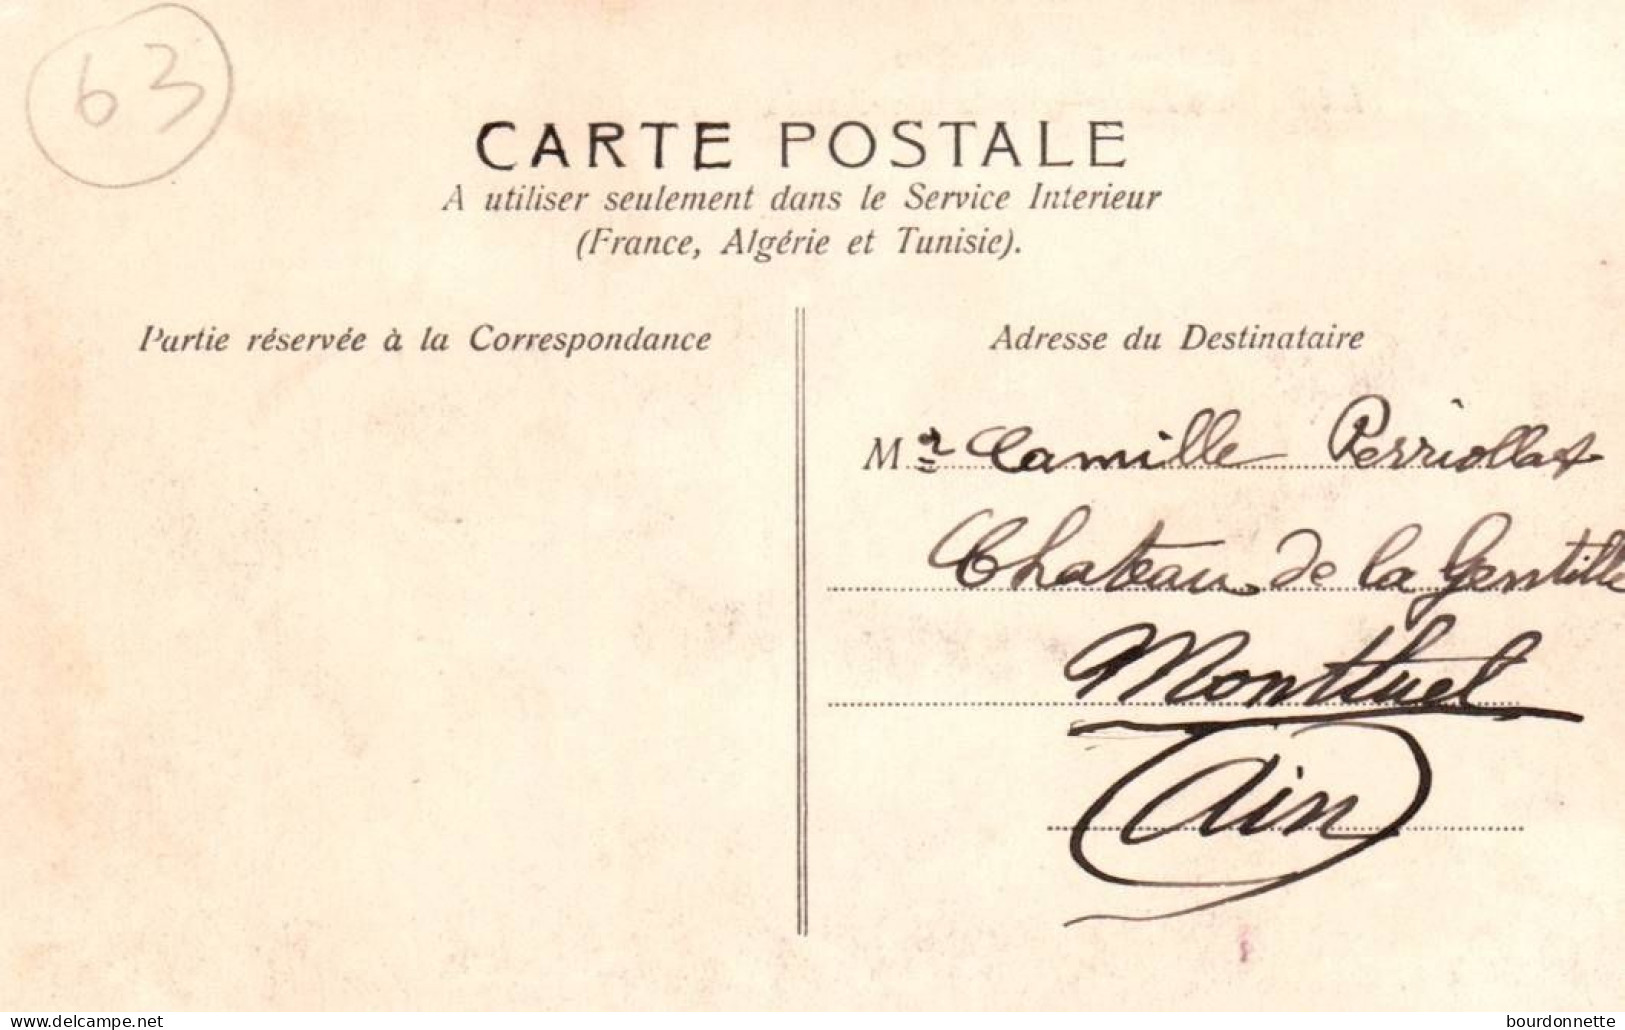 63
CARTE POSTALE
A utiliser seulement dans le Service Interieur
(France, Algérie et Tunisie).
Partie réservée à la Correspondance
Adresse du Destinataire
Mr Camille Perriollat
Chateau de la Gentille
Montluel
Ain
www.delcampe.net
bourdonnette